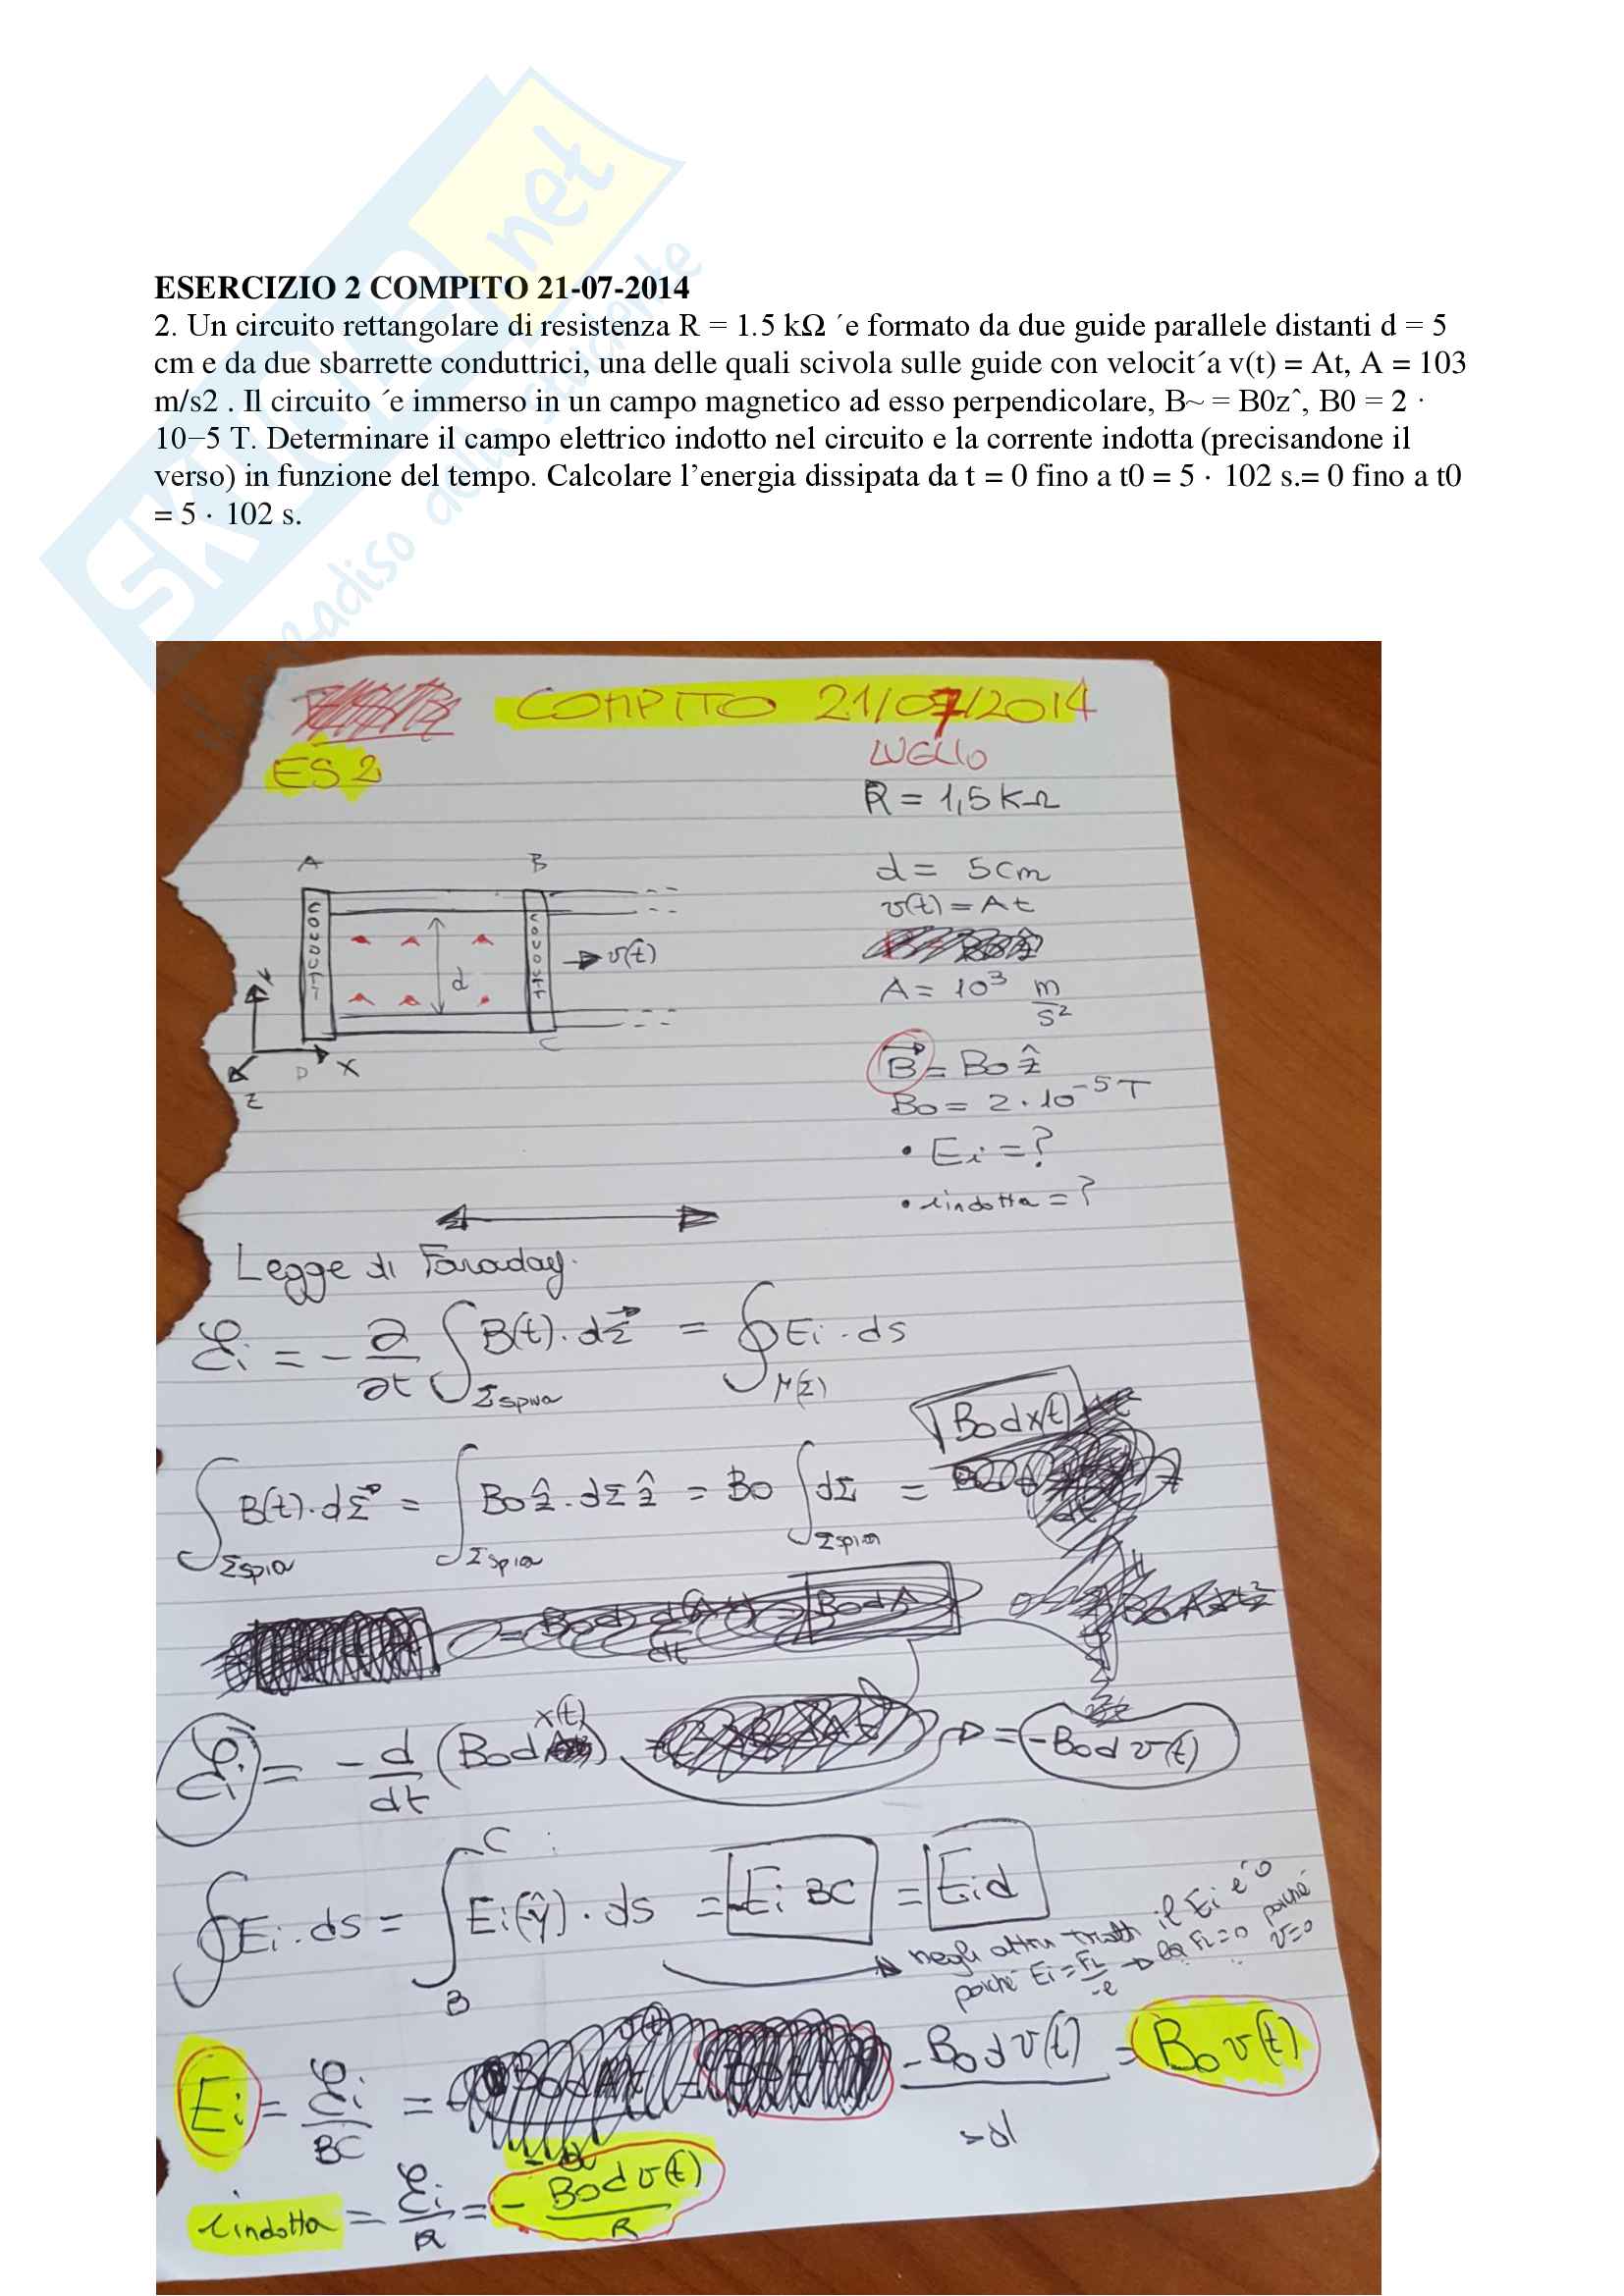 SKUOLA.net
il paradiso dello studente
ESERCIZIO 2 COMPITO 21-07-2014
2. Un circuito rettangolare di resistenza R = 1.5 kΩ ´e formato da due guide parallele distanti d = 5
cm e da due sbarrette conduttrici, una delle quali scivola sulle guide con velocit´a v(t) = At, A = 103
m/s2 . Il circuito ´e immerso in un campo magnetico ad esso perpendicolare, B~ = B0zˆ, B0 = 2 ·
10−5 T. Determinare il campo elettrico indotto nel circuito e la corrente indotta (precisandone il
verso) in funzione del tempo. Calcolare l’energia dissipata da t = 0 fino a t0 = 5 · 102 s.= 0 fino a t0
= 5 · 102 s.
COMPITO 21/07/2014
LUGLIO
ES 2
R = 1,5 KΩ
A B
d = 5 cm
v(t) = At
v(t)
d
A = 10³ m/s²
D X C
z
B⃗ = B0 ẑ
B0 = 2 · 10⁻⁵ T
• Ei = ?
• iindotta = ?
Legge di Faraday.
Ɛi = - ∂/∂t ∫Σspira B(t) · dΣ⃗ = ∮ Ei · ds
B0 d x(t)
∫Σspira B(t) · dΣ⃗ = ∫Σspira B0 ẑ · dΣ ẑ = B0 ∫Σspira dΣ =
Ɛi = - d/dt (B0 d x(t)) = - B0 d v(t)
∮ Ei · ds = ∫ B C Ei(-ŷ) · ds = - Ei BC = Ei d
negli altri tratti il Ei è 0
poiché Ei = FL/-e → la FL = 0 poiché v = 0
Ei = Ɛi/BC = - B0 d v(t) / -d = B0 v(t)
iindotta = Ɛi/R = - B0 d v(t)/R